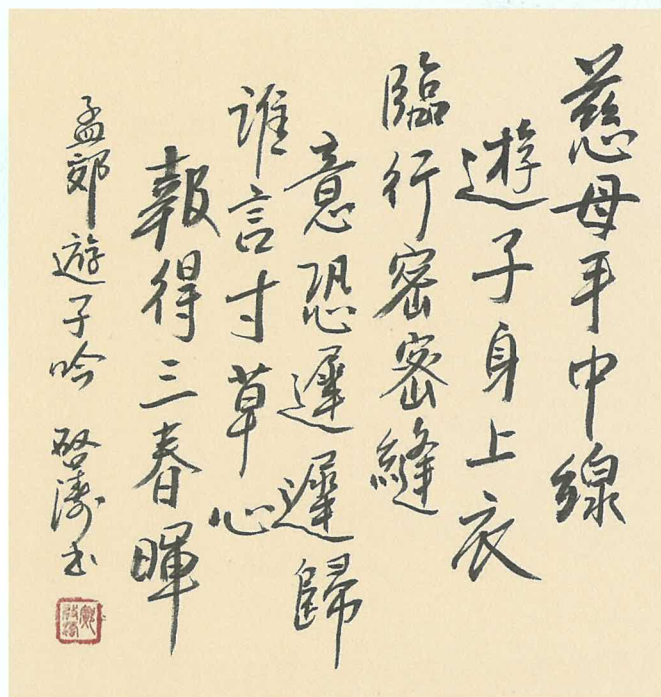 慈母手中線
遊子身上衣
臨行密密縫
意恐遲遲歸
誰言寸草心
報得三春暉
孟郊遊子吟 啓濤書